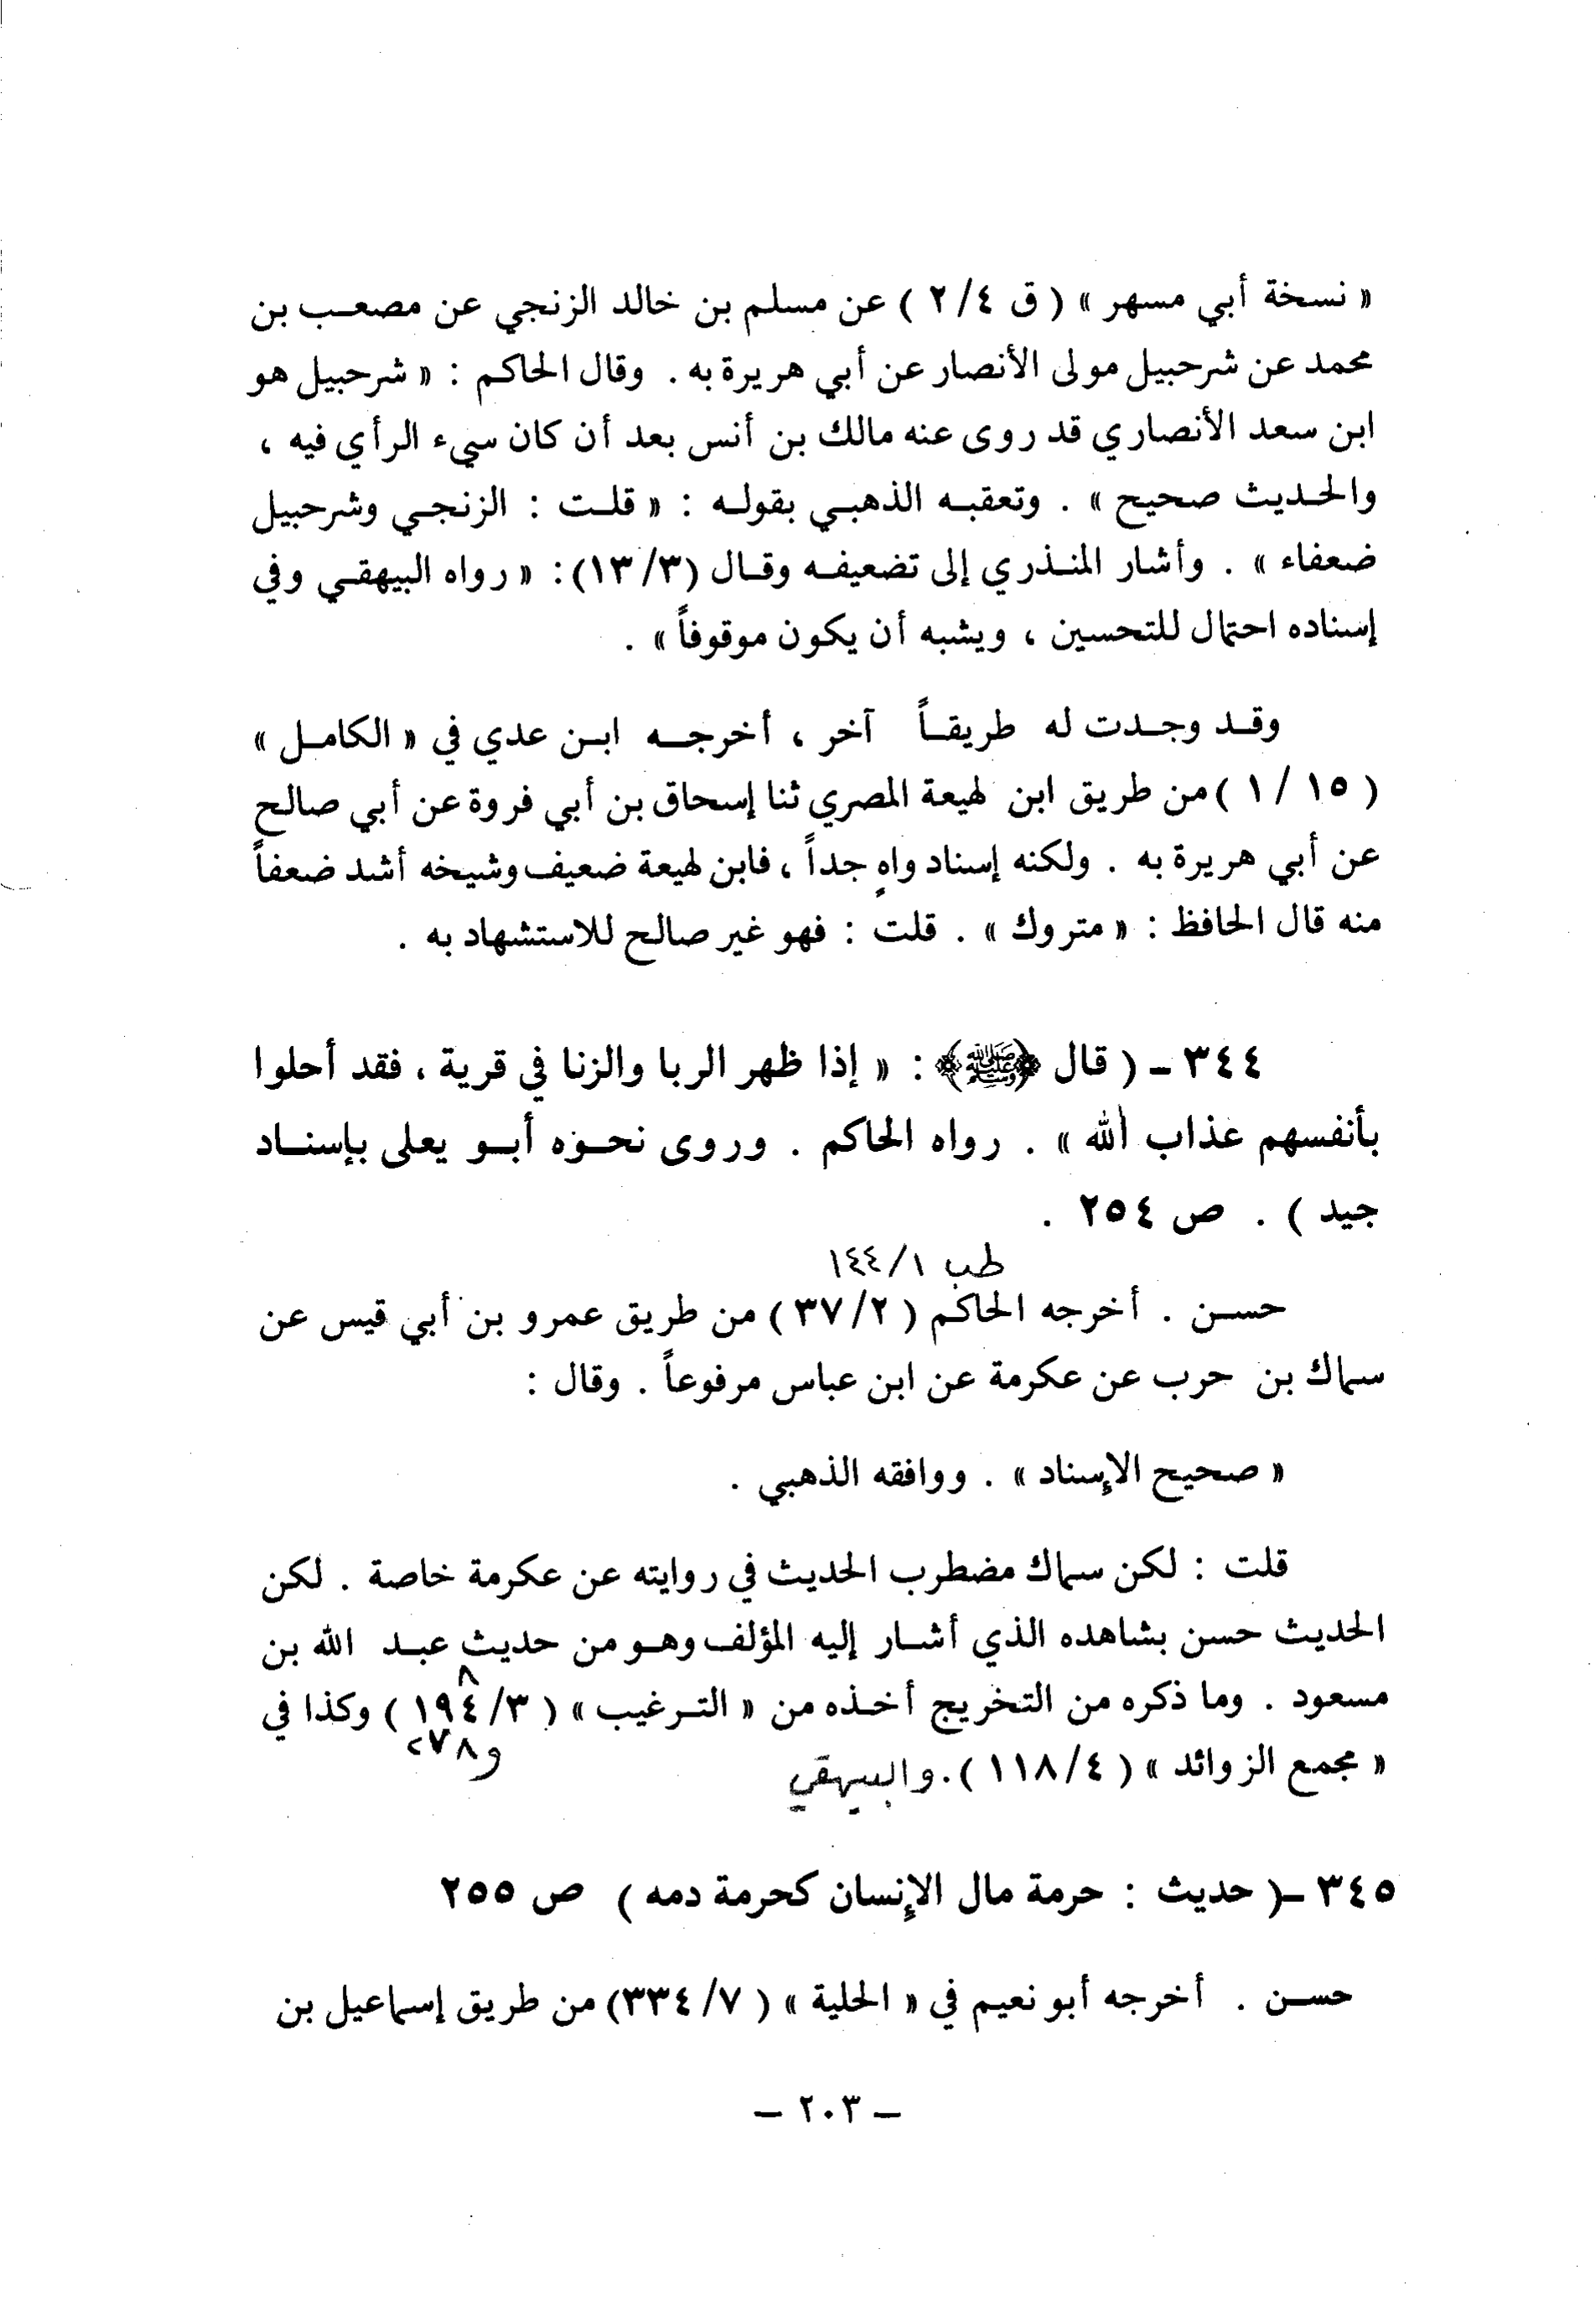 « نسخة أبي مسهر » ( ق ٢/٤ ) عن مسلم بن خالد الزنجي عن مصعب بن
محمد عن شرحبيل مولى الأنصار عن أبي هريرة به . وقال الحاكم : « شرحبيل هو
ابن سعد الأنصاري قد روى عنه مالك بن أنس بعد أن كان سيء الرأي فيه ،
والحديث صحيح » . وتعقبه الذهبي بقوله : « قلت : الزنجي وشرحبيل
ضعفاء » . وأشار المنذري إلى تضعيفه وقال (١٣/٣): « رواه البيهقي وفي
إسناده احتمال للتحسين ، ويشبه أن يكون موقوفاً » .
وقد وجدت له طريقاً آخر ، أخرجه ابن عدي في « الكامل »
( ١/١٥ ) من طريق ابن لهيعة المصري ثنا إسحاق بن أبي فروة عن أبي صالح
عن أبي هريرة به . ولكنه إسناد واهٍ جداً ، فابن لهيعة ضعيف وشيخه أشد ضعفاً
منه قال الحافظ : « متروك » . قلت : فهو غير صالح للاستشهاد به .
٣٤٤ - ( قال ﷺ : « إذا ظهر الربا والزنا في قرية ، فقد أحلوا
بأنفسهم عذاب الله » . رواه الحاكم . وروى نحوه أبو يعلى بإسناد
جيد ) . ص ٢٥٤ .
طب ١٤٤/١
حسن . أخرجه الحاكم ( ٣٧/٢ ) من طريق عمرو بن أبي قيس عن
سماك بن حرب عن عكرمة عن ابن عباس مرفوعاً . وقال :
« صحيح الإسناد » . ووافقه الذهبي .
قلت : لكن سماك مضطرب الحديث في روايته عن عكرمة خاصة . لكن
الحديث حسن بشاهده الذي أشار إليه المؤلف وهو من حديث عبد الله بن
٨
مسعود . وما ذكره من التخريج أخذه من « الترغيب » ( ١٩٤/٣ ) وكذا في
و٢٧٨
« مجمع الزوائد » ( ١١٨/٤ ). والبيهقي
٣٤٥ -( حديث : حرمة مال الإنسان كحرمة دمه ) ص ٢٥٥
حسن . أخرجه أبو نعيم في « الحلية » ( ٣٣٤/٧) من طريق إسماعيل بن
– ٢٠٣ –